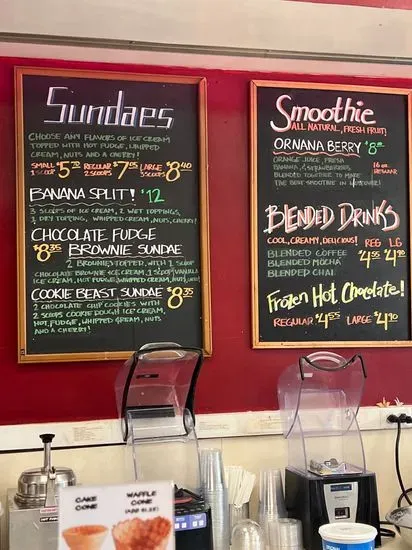 Sundaes
CHOOSE ANY FLAVORS OF ICE CREAM
TOPPED WITH HOT FUDGE, WHIPPED
CREAM, NUTS AND A CHERRY!
SMALL $5.30 REGULAR $7.55 LARGE $8.40
1 SCOOP 2 SCOOPS 3 SCOOPS
BANANA SPLIT! $12
3 SCOOPS OF ICE CREAM, 2 WET TOPPINGS,
1 DRY TOPPING, WHIPPED CREAM, NUTS, CHERRY!
CHOCOLATE FUDGE
$8.35 BROWNIE SUNDAE
2 BROWNIES TOPPED WITH 1 SCOOP
CHOCOLATE BROWNIE ICE CREAM, 1 SCOOP VANILLA
ICE CREAM, HOT FUDGE, WHIPPED CREAM, NUTS
COOKIE BEAST SUNDAE $8.35
2 CHOCOLATE CHIP COOKIES WITH
2 SCOOPS COOKIE DOUGH ICE CREAM,
HOT FUDGE, WHIPPED CREAM, NUTS
AND A CHERRY!
Smoothie
ALL NATURAL, FRESH FRUIT!
ORNANA BERRY
ORANGE JUICE, FRESH
BANANA, & STRAWBERRIES
BLENDED TOGETHER TO MAKE
THE BEST SMOOTHIE IN
16 oz.
REGULAR
BLENDED DRINKS
COOL, CREAMY, DELICIOUS! REG LG
BLENDED COFFEE $4.55 $4.90
BLENDED MOCHA
BLENDED CHAI
Frozen Hot Chocolate!
REGULAR $4.55 LARGE $4.90
CAKE
CONE
WAFFLE
CONE